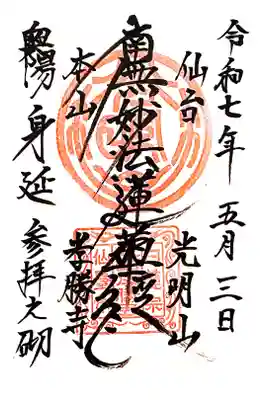 令和七年 五月三日
仙台 光明山
南無妙法蓮華経
本山 孝勝寺
奥陽 身延 参拝之砌